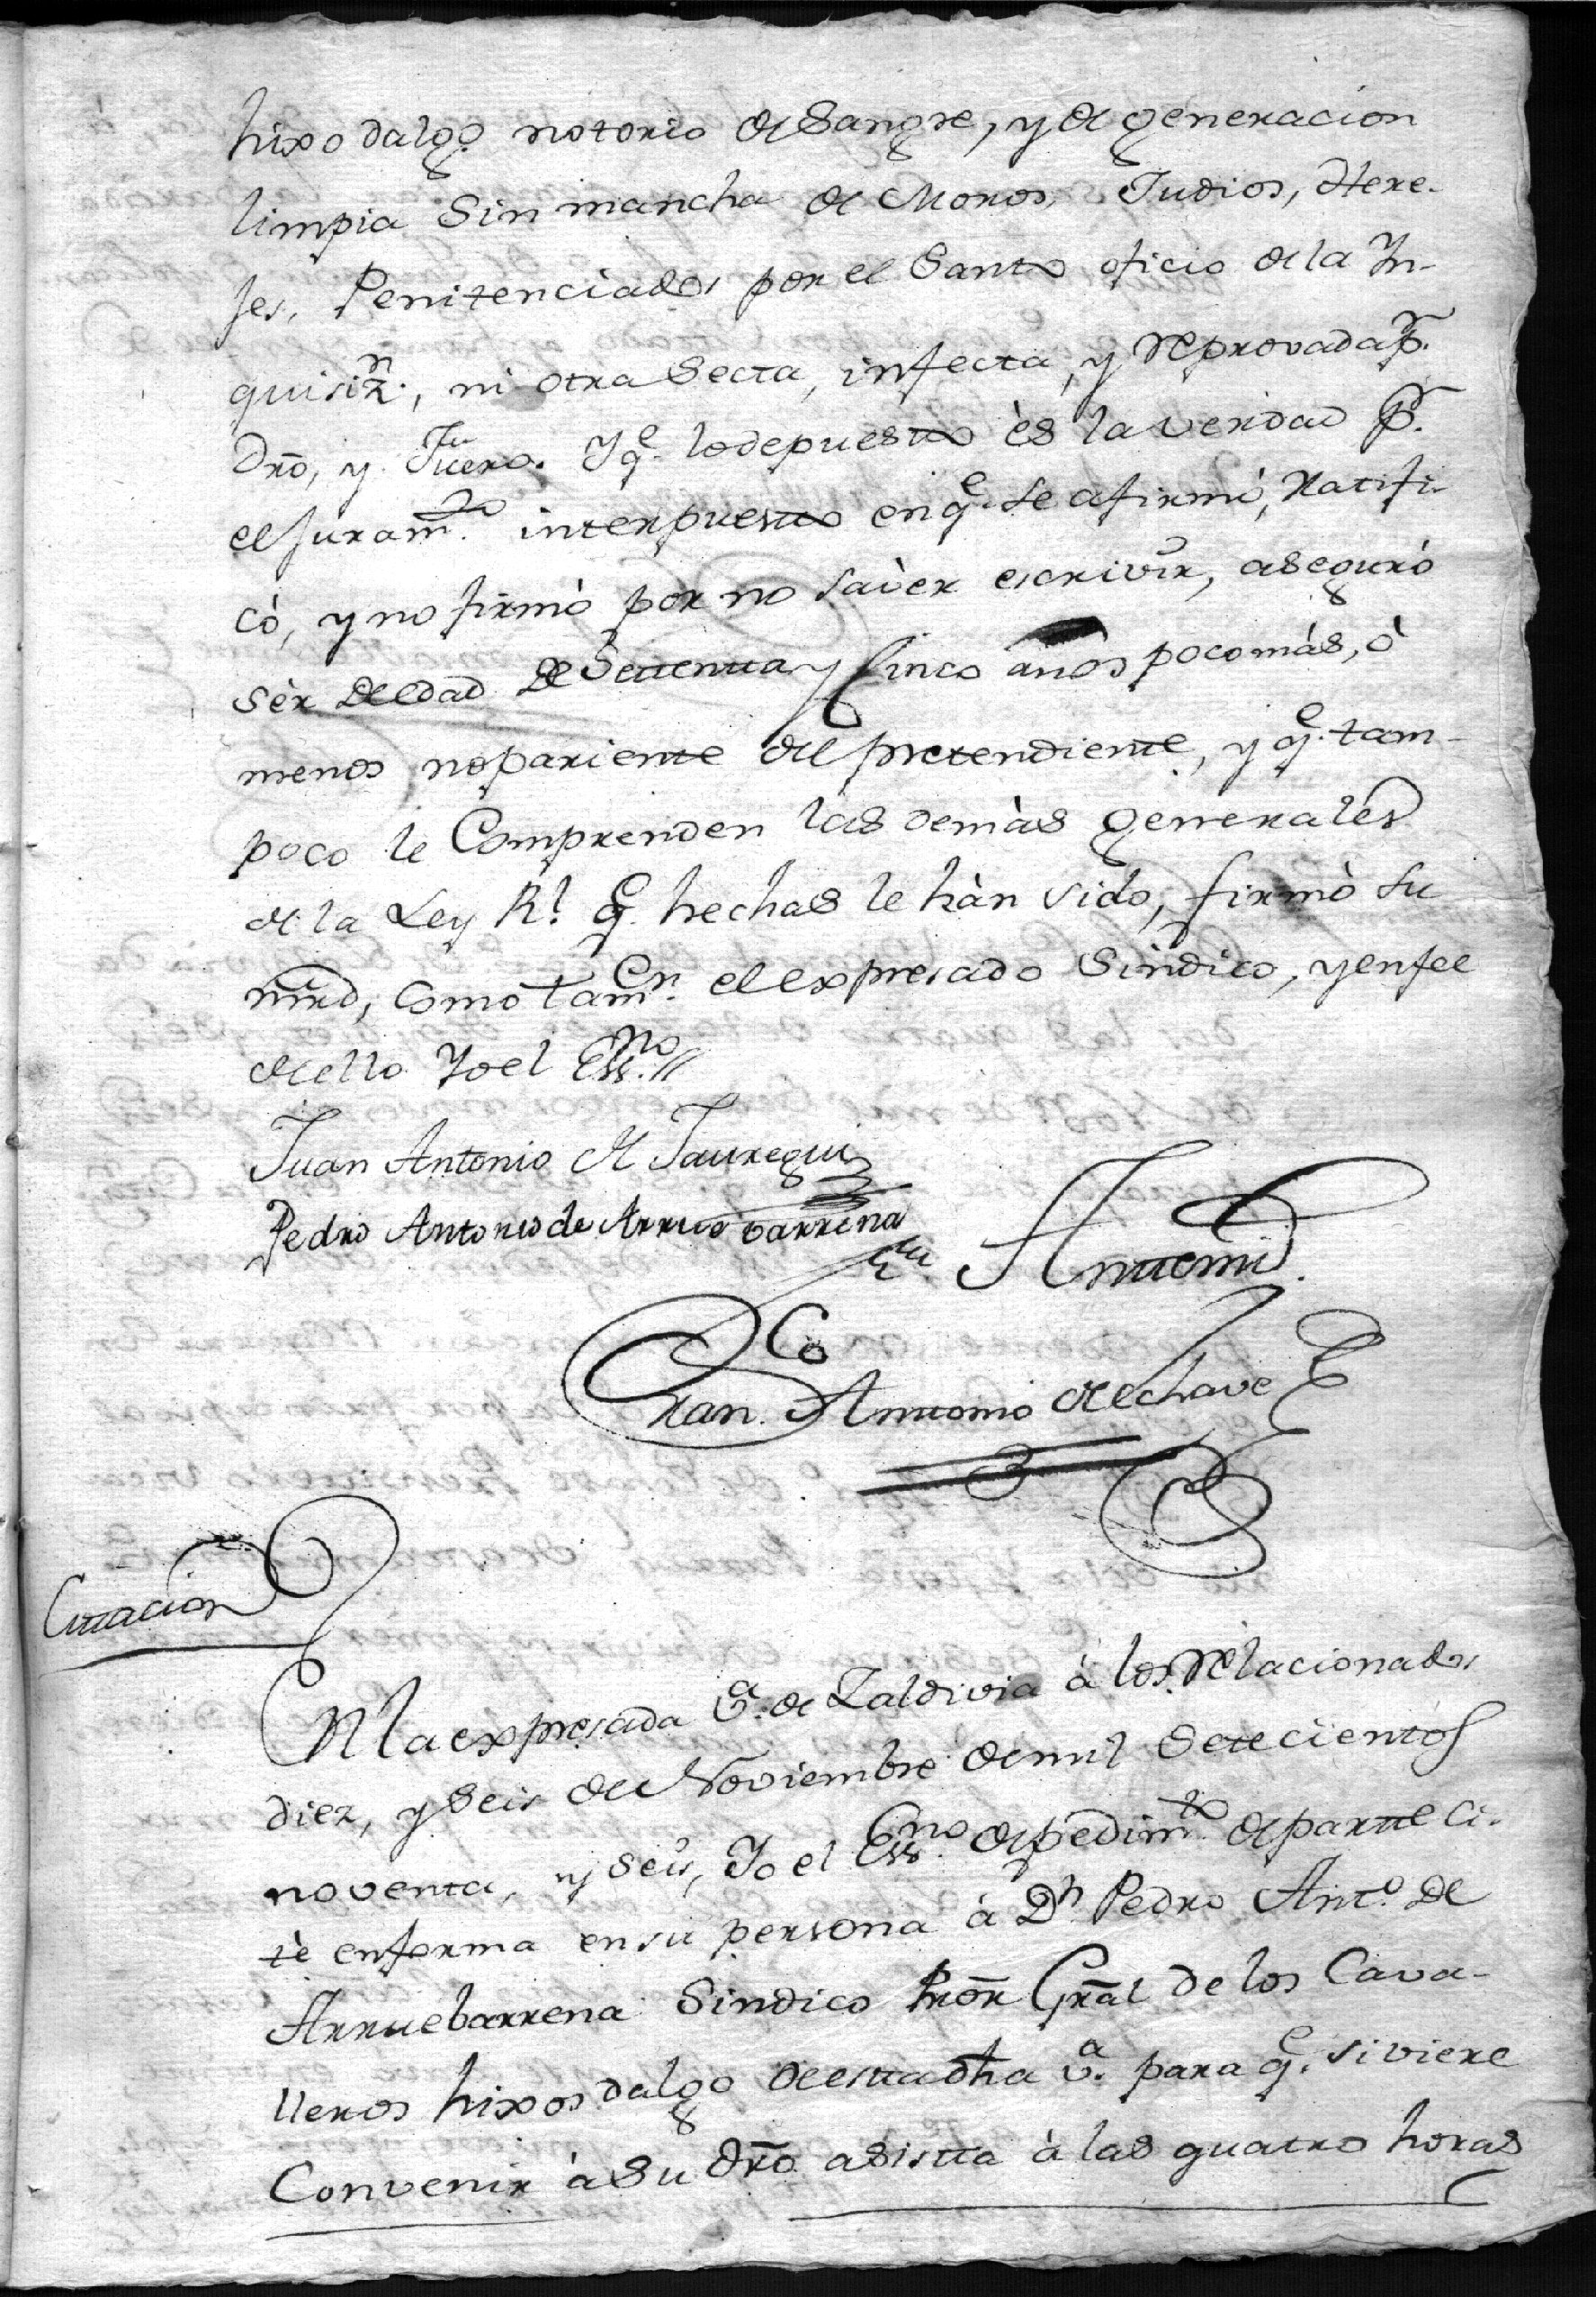 hixodalgo notorio de Sangre, y de generacion
limpia Sin mancha de Moros, Judios, Here-
jes, Penitenciados por el Santo oficio de la In-
quisizn., ni otra Secta, infecta, y reprovada pr.
Dro, y Fuero. Y qe. lo depuesto ès la verdad pr.
el juramto. interpuesto en qe. se afirmò, ratifi-
cò, y no firmò por no savèr escrivir, aseguró
sèr de edad de Settentta y Cinco años poco màs, ò
menos no pariente del pretendiente, y qe. tam-
poco le Comprenden las demàs generales
de la Ley Rl. qe. hechas le hàn sido, firmò su
mrd, como tamen. el expresado Sindico, y en fee
de ello Yo el Essno.//
Juan Antonio de Jauregui
Pedro Antonio de Arrue barrena
Antte mi
Franco. Anttonio de Echave
Cittacion
En la expresada va. de Zaldivia à los relacionados
diez, y seis de Noviembre de mil Setecientos
noventa, y seis, Yo el Essno. de pedimto. de partte ci-
tè en forma en su persona à Dn. Pedro Anto. de
Arruebarrena Sindico Pror Gral de los Cava-
lleros hixosdalgo de estta dha va. para qe. si viere
Convenir à su dro. asistta à las quatro horas